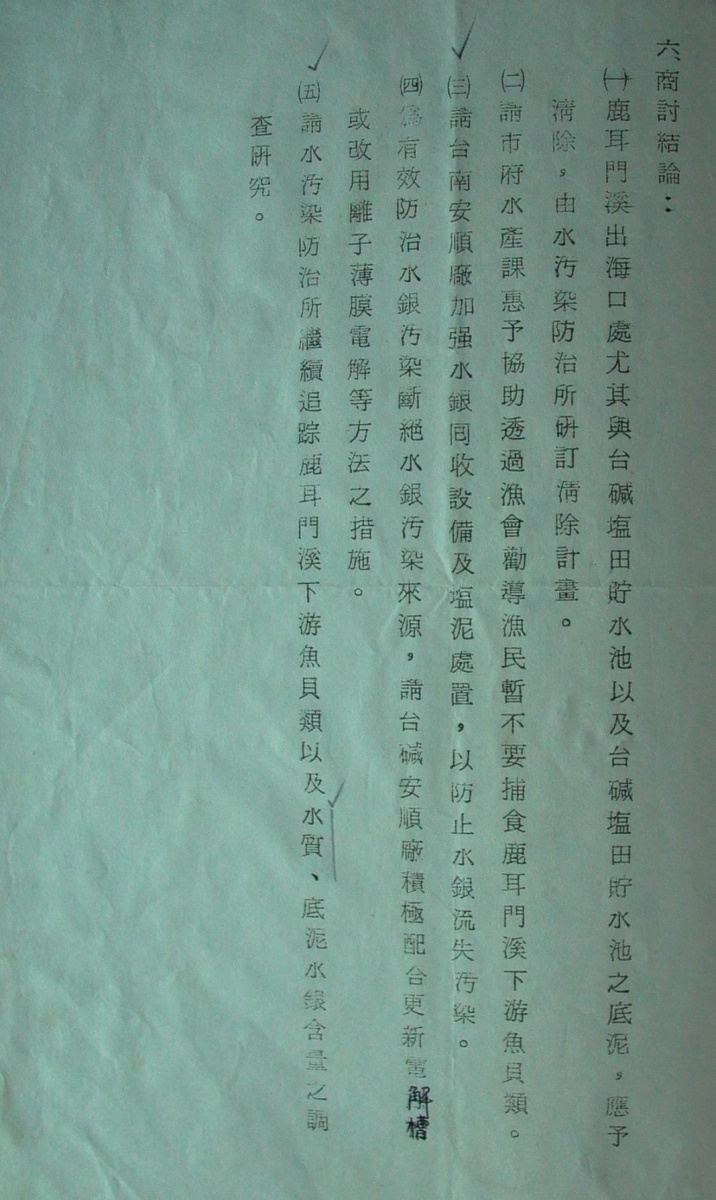 六、商討結論：
㈠鹿耳門溪出海口處尤其與台碱塩田貯水池以及台碱塩田貯水池之底泥，應予
清除，由水汚染防治所研訂淸除計畫。
㈡請市府水產課惠予協助透過漁會勸導漁民暫不要捕食鹿耳門溪下游魚貝類。
㈢請台南安順廠加强水銀回收設備及塩泥處置，以防止水銀流失汚染。
㈣爲有效防治水銀汚染斷絕水銀汚染來源，請台碱安順廠積極配合更新電解槽
或改用離子薄膜電解等方法之措施。
㈤請水汚染防治所繼續追踪鹿耳門溪下游魚貝類以及水質、底泥水銀含量之調
查研究。